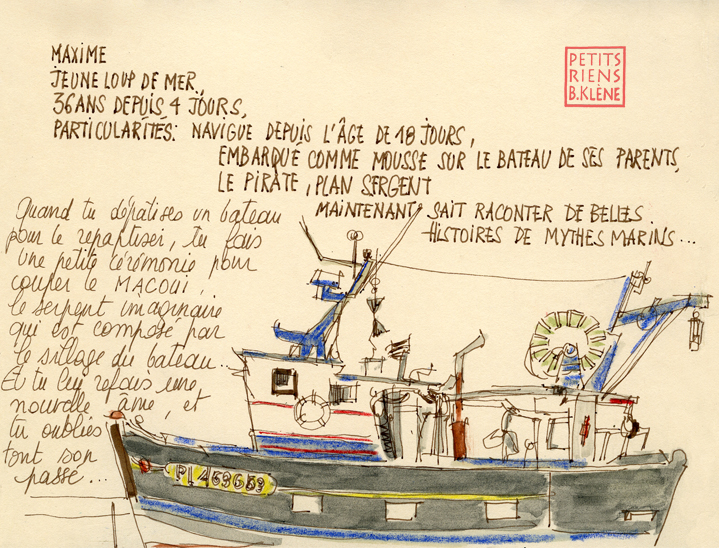 MAXIME
JEUNE LOUP DE MER,
36 ANS DEPUIS 4 JOURS,
PARTICULARITÉS: NAVIGUE DEPUIS L'ÂGE DE 18 JOURS,
EMBARQUÉ COMME MOUSSE SUR LE BATEAU DE SES PARENTS,
LE PIRATE, PLAN SERGENT
MAINTENANT SAIT RACONTER DE BELLES
HISTOIRES DE MYTHES MARINS...
PETITS
RIENS
B.KLÈNE
Quand tu dépatises un bateau
pour le rebaptiser, tu fais
une petite cérémonie pour
couper le MACOUI,
le serpent imaginaire
qui est composé par
le sillage du bateau...
Et tu lui refais une
nouvelle âme, et
tu oublies
tout son
passé...
PL 469669